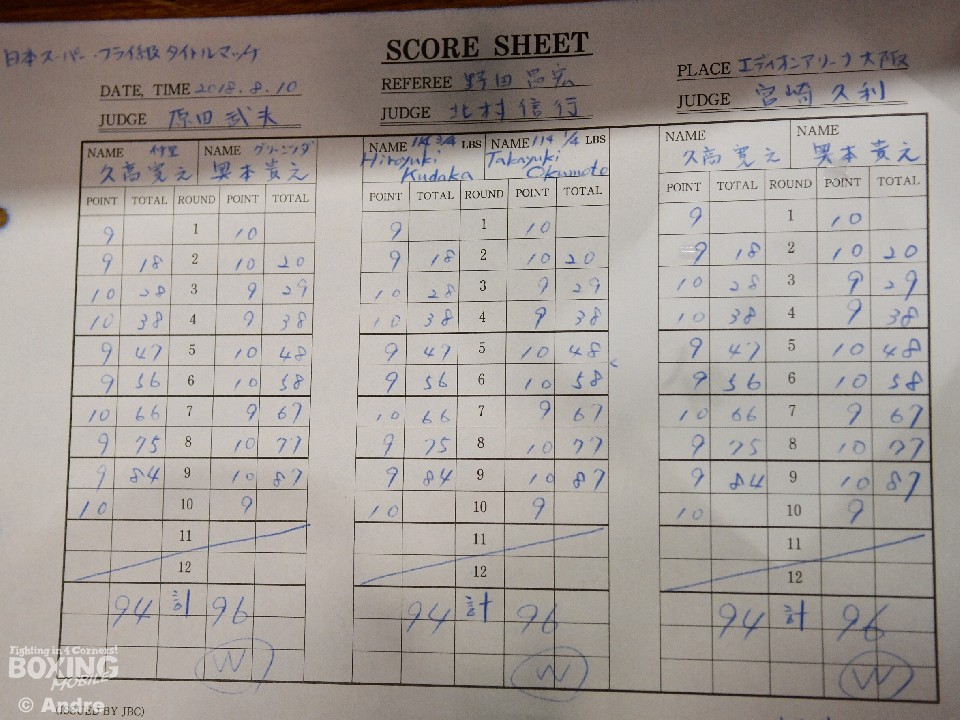 日本スーパー・フライ級タイトルマッチ
SCORE SHEET
DATE, TIME 2018.8.10
REFEREE 野田昌宏
PLACE エディオンアリーナ大阪
JUDGE 原田武夫
JUDGE 北村信行
JUDGE 宮崎久利
NAME 仲里 NAME グリーンツダ NAME 114 3/4 LBS NAME 114 1/4 LBS NAME NAME
久高寛之 奥本貴之 Hiroyuki Kudaka Takayuki Okumoto 久高寛之 奥本貴之
POINT TOTAL ROUND POINT TOTAL POINT TOTAL ROUND POINT TOTAL POINT TOTAL ROUND POINT TOTAL
9 1 10 9 1 10 9 1 10
9 18 2 10 20 9 18 2 10 20 9 18 2 10 20
10 28 3 9 29 10 28 3 9 29 10 28 3 9 29
10 38 4 9 38 10 38 4 9 38 10 38 4 9 38
9 47 5 10 48 9 47 5 10 48 9 47 5 10 48
9 56 6 10 58 9 56 6 10 58 9 56 6 10 58
10 66 7 9 67 10 66 7 9 67 10 66 7 9 67
9 75 8 10 77 9 75 8 10 77 9 75 8 10 77
9 84 9 10 87 9 84 9 10 87 9 84 9 10 87
10 10 9 10 10 9 10 10 9
11 11 11
12 12 12
94 計 96 94 計 96 94 計 96
W W W
Fighting in 4 Corners!
BOXING
MOBILE
© Andre
(ISSUED BY JBC)